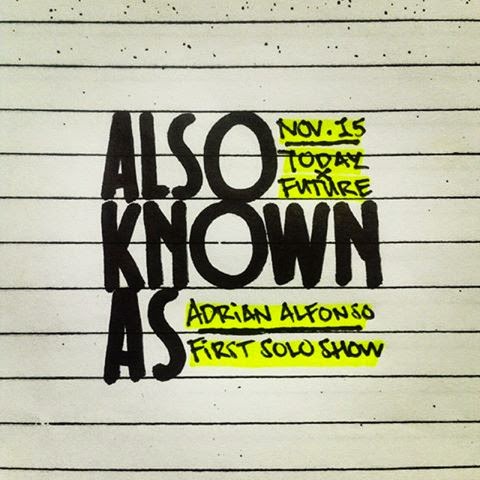 ALSO
NOV. 15
TODAY
X
FUTURE
KNOWN
AS
ADRIAN ALFONSO
FIRST SOLO SHOW